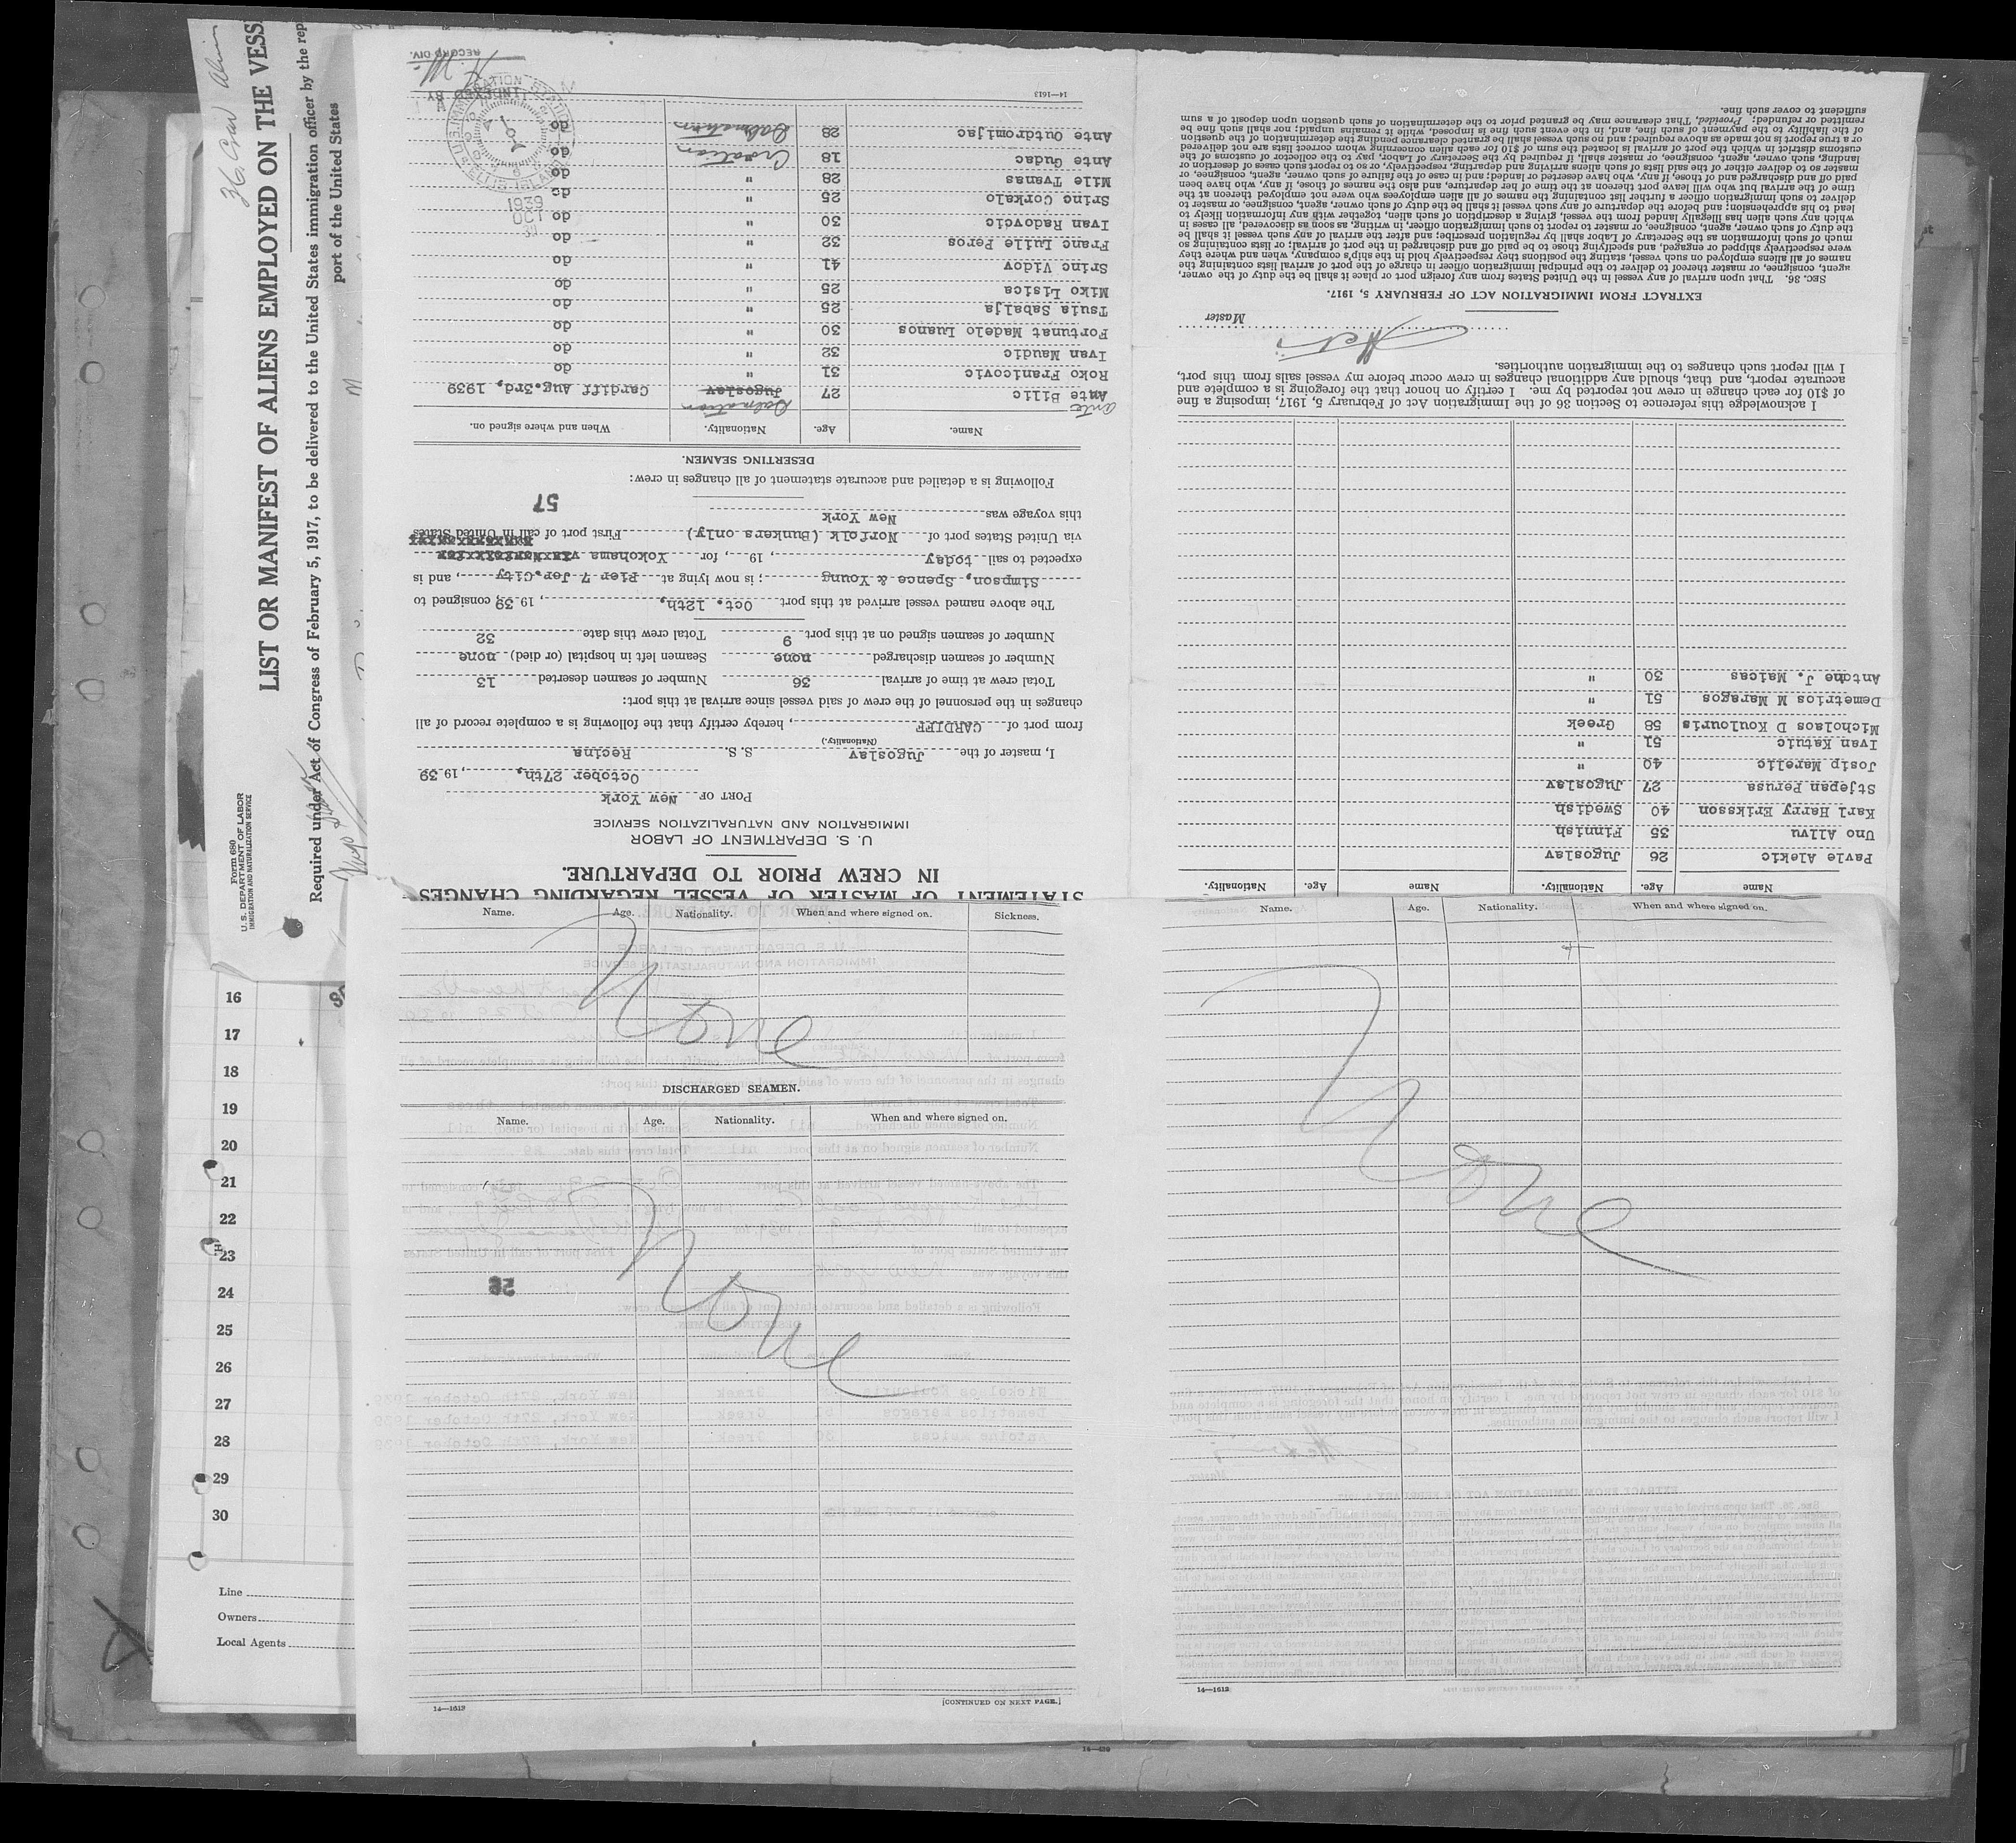 36 Crew Aliens
Form 680
U. S. DEPARTMENT OF LABOR
IMMIGRATION AND NATURALIZATION SERVICE
LIST OR MANIFEST OF ALIENS EMPLOYED ON THE VESS
Required under Act of Congress of February 5, 1917, to be delivered to the United States immigration officer by the rep
port of the United States
16
17
18
19
20
21
22
23
24
25
26
27
28
29
30
Line
Owners
Local Agents
STATEMENT OF MASTER OF VESSEL REGARDING CHANGES
IN CREW PRIOR TO DEPARTURE.
U. S. DEPARTMENT OF LABOR
IMMIGRATION AND NATURALIZATION SERVICE
PORT OF New York
October 27th, , 19 39
I, master of the Jugoslav S. S. Recina
(Nationality.)
from port of CARDIFF , hereby certify that the following is a complete record of all
changes in the personnel of the crew of said vessel since arrival at this port:
Total crew at time of arrival 36 Number of seamen deserted 13
Number of seamen discharged none Seamen left in hospital (or died) none
Number of seamen signed on at this port 9 Total crew this date 32
The above named vessel arrived at this port Oct. 12th, , 19 39, consigned to
Simpson, Spence & Young ; is now lying at Pier 7 Jer.City , and is
expected to sail today , 19 , for Yokohama
via United States port of Norfolk (Bunkers only) First port of call in United States
this voyage was New York
57
Following is a detailed and accurate statement of all changes in crew:
DESERTING SEAMEN.
Name. Age. Nationality. When and where signed on.
Ante Dalmation
Ante Bilic 27 Jugoslav Cardiff Aug.3rd, 1939
Roko Franicovic 31 do
Ivan Maudic 32 " do
Fortunat Madelo Luanos 30 " do
Tsuia Sabalja 25 " do
Miko Lisica 25 " do
Srinc Vidov 41 " do
Franc Luile Peros 32 " do
Ivan Radovic 30 " do
Srinc Corkalo 25 " do
Mile Tvanas 28 " do
Ante Gudac 18 Croatian do
Ante Outdrmijac 28 Dalmation do
14—1613
U.S. IMMIGRATION STATION
ELLIS ISLAND
1939
OCT
31
INDEXED BY
RECORD DIV.
Name Age. Nationality. Name Age. Nationality.
Pavle Alekic 26 Jugoslav
Uno Alivu 35 Finnish
Karl Harry Eriksson 40 Swedish
Stjepan Perusa 27 Jugoslav
Josip Marelic 40 "
Ivan Katuic 51 "
Nicholaos D Koulouris 58 Greek
Demetrios M Maragos 51 "
Antone J. Maicas 30 "
I acknowledge this reference to Section 36 of the Immigration Act of February 5, 1917, imposing a fine
of $10 for each change in crew not reported by me. I certify on honor that the foregoing is a complete and
accurate report, and that, should any additional changes in crew occur before my vessel sails from this port,
I will report such changes to the immigration authorities.
Master
EXTRACT FROM IMMIGRATION ACT OF FEBRUARY 5, 1917.
SEC. 36. That upon arrival of any vessel in the United States from any foreign port or place it shall be the duty of the owner,
agent, consignee, or master thereof to deliver to the principal immigration officer in charge of the port of arrival lists containing the
names of all aliens employed on such vessel, stating the positions they respectively hold in the ship's company, when and where they
were respectively shipped or engaged, and specifying those to be paid off and discharged in the port of arrival; or lists containing so
much of such information as the Secretary of Labor shall by regulation prescribe; and after the arrival of any such vessel it shall be
the duty of such owner, agent, consignee, or master to report to such immigration officer, in writing, as soon as discovered, all cases in
which any such alien has illegally landed from the vessel, giving a description of such alien, together with any information likely to
lead to his apprehension; and before the departure of any such vessel it shall be the duty of such owner, agent, consignee, or master to
deliver to such immigration officer a further list containing the names of all alien employees who were not employed thereon at the
time of the arrival but who will leave port thereon at the time of her departure, and also the names of those, if any, who have been
paid off and discharged and of those, if any, who have deserted or landed; and in case of the failure of such owner, agent, consignee, or
master so to deliver either of the said lists of such aliens arriving and departing, respectively, or so to report such cases of desertion or
landing, such owner, agent, consignee, or master shall, if required by the Secretary of Labor, pay to the collector of customs of the
customs district in which the port of arrival is located the sum of $10 for each alien concerning whom correct lists are not delivered
or a true report is not made as above required; and no such vessel shall be granted clearance pending the determination of the question
of the liability to the payment of such fine, and, in the event such fine is imposed, while it remains unpaid; nor shall such fine be
remitted or refunded; Provided, That clearance may be granted prior to the determination of such question upon deposit of a sum
sufficient to cover such fine.
Name. Age. Nationality. When and where signed on. Sickness.
None
DISCHARGED SEAMEN.
Name. Age. Nationality. When and where signed on.
None
[CONTINUED ON NEXT PAGE.]
14—1613
Name. Age. Nationality. When and where signed on.
None
14—1613